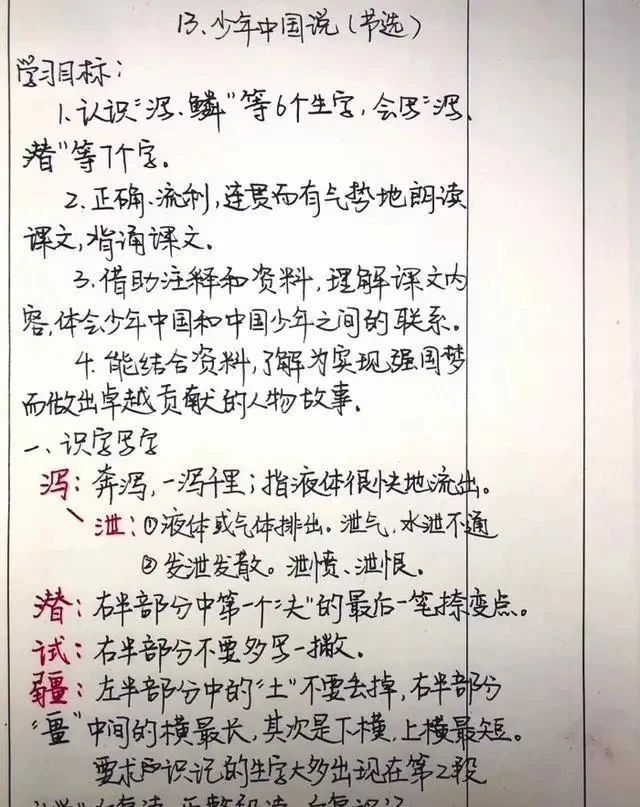 13、少年中国说(节选)
学习目标:
1、认识“泻、鳞”等6个生字,会写“泻、
潜”等7个字。
2、正确、流利,连贯而有气势地朗读
课文,背诵课文。
3、借助注释和资料,理解课文内
容,体会少年中国和中国少年之间的联系。
4、能结合资料,了解为实现强国梦
而做出卓越贡献的人物故事。
一、识字写字
泻:奔泻,一泻千里;指液体很快地流出。
泄:①液体或气体排出。泄气,水泄不通
②发泄发散。泄愤、泄恨。
潜:右半部分中第一个“夫”的最后一笔捺变点。
试:右半部分不要多写一撇。
疆:左半部分中的“土”不要丢掉,右半部分
“畺”中间的横最长,其次是下横,上横最短。
要求识记的生字大多出现在第2段